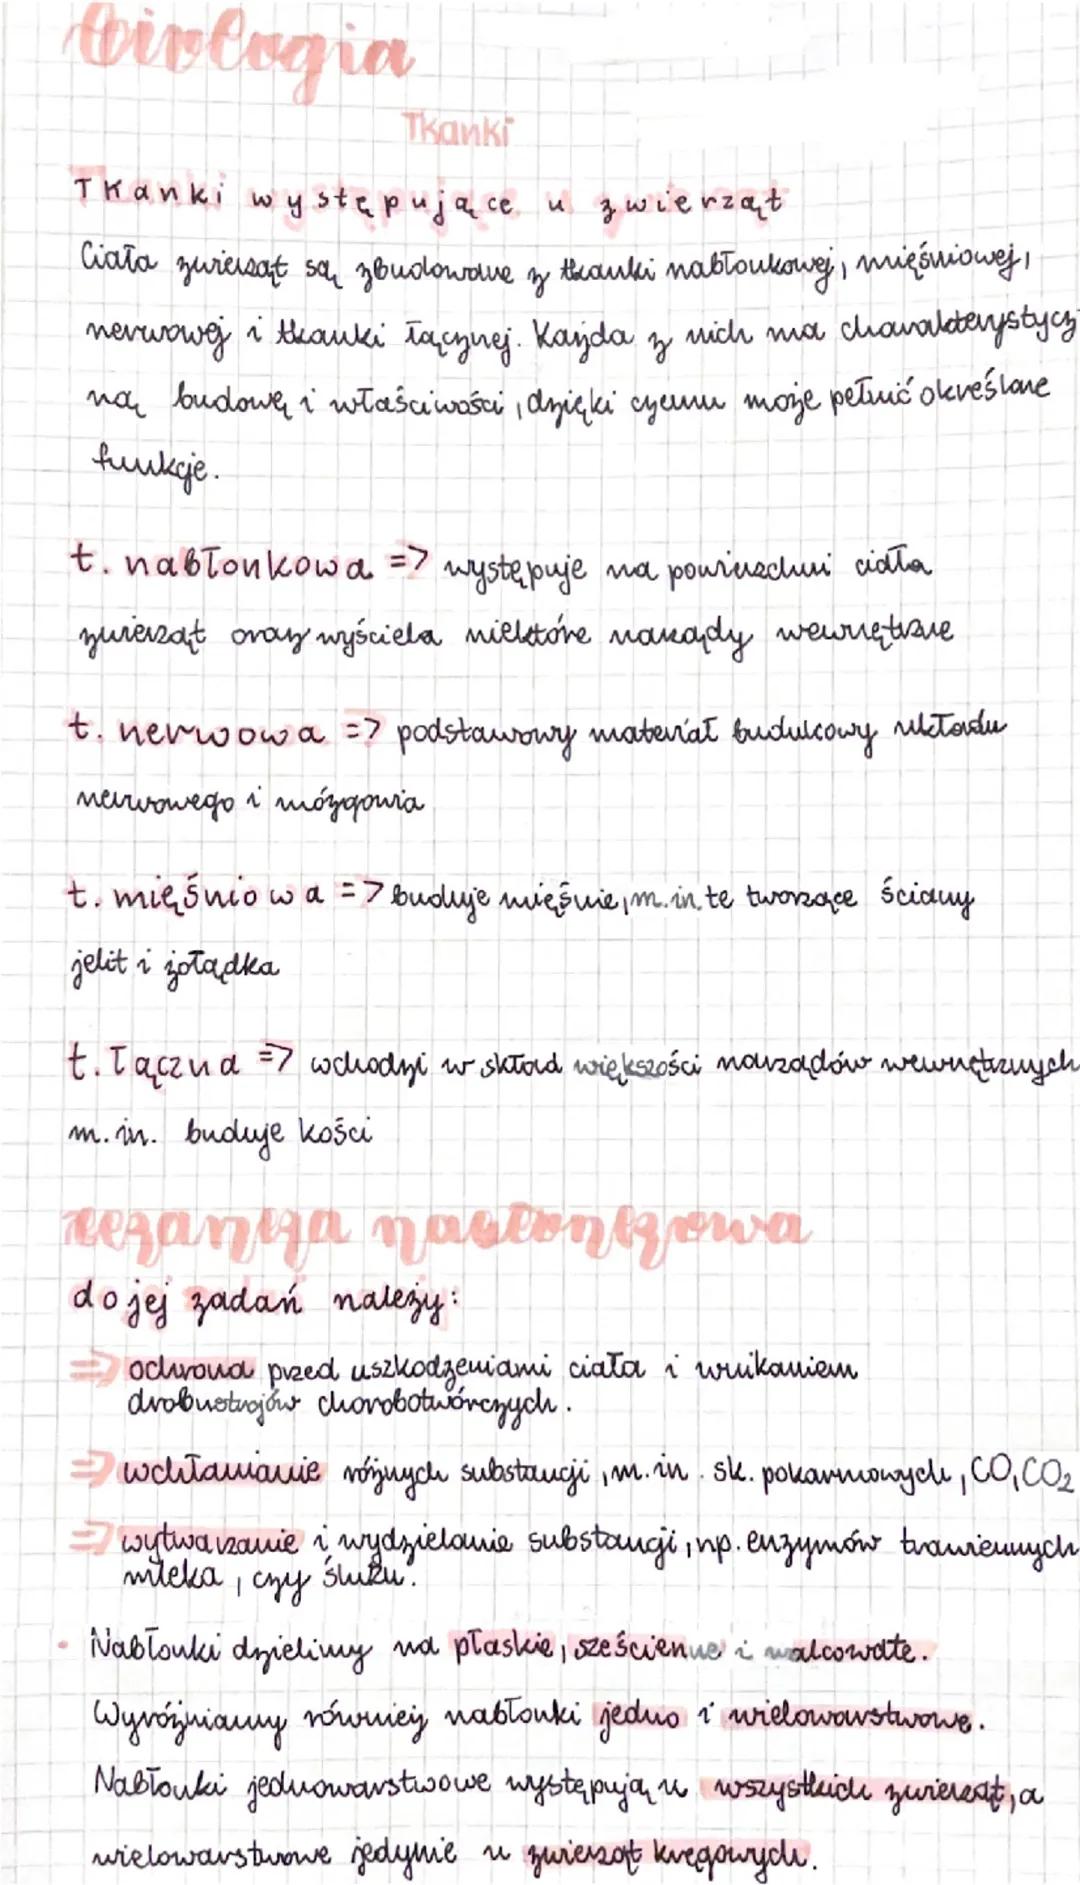 biologia
Tkanki
Tkanki występujące u zwierząt
Ciała zwierząt są zbudowane z tkanki nabłonkowej, mięśniowej,
nerwowej i tkanki łącznej. Każda z nich ma charakterystycz-
ną budowę i właściwości, dzięki czemu może pełnić określone
funkcje.
t. nabłonkowa => występuje na powierzchni ciała
zwierząt oraz wyściela niektóre narządy wewnętrzne
t. nerwowa => podstawowy materiał budulcowy układu
nerwowego i mózgowia
t. mięśniowa => buduje mięśnie, m.in. te tworzące ściany
jelit i żołądka
t. łączna => wchodzi w skład większości narządów wewnętrznych
m.in. buduje kości
tkanka nabłonkowa
do jej zadań należy:
=> ochrona przed uszkodzeniami ciała i wnikaniem
drobnostrojów chorobotwórczych.
=> wchłanianie różnych substancji, m.in. sk. pokarmowych, CO, CO2
=> wytwarzanie i wydzielanie substancji, np. enzymów trawiennych
mleka, czy śluzu.
• Nabłonki dzielimy na płaskie, sześcienne i walcowate.
Wyróżniamy również nabłonki jedno i wielowarstwowe.
Nabłonki jednowarstwowe występują u wszystkich zwierząt, a
wielowarstwowe jedynie u zwierząt kręgowych.